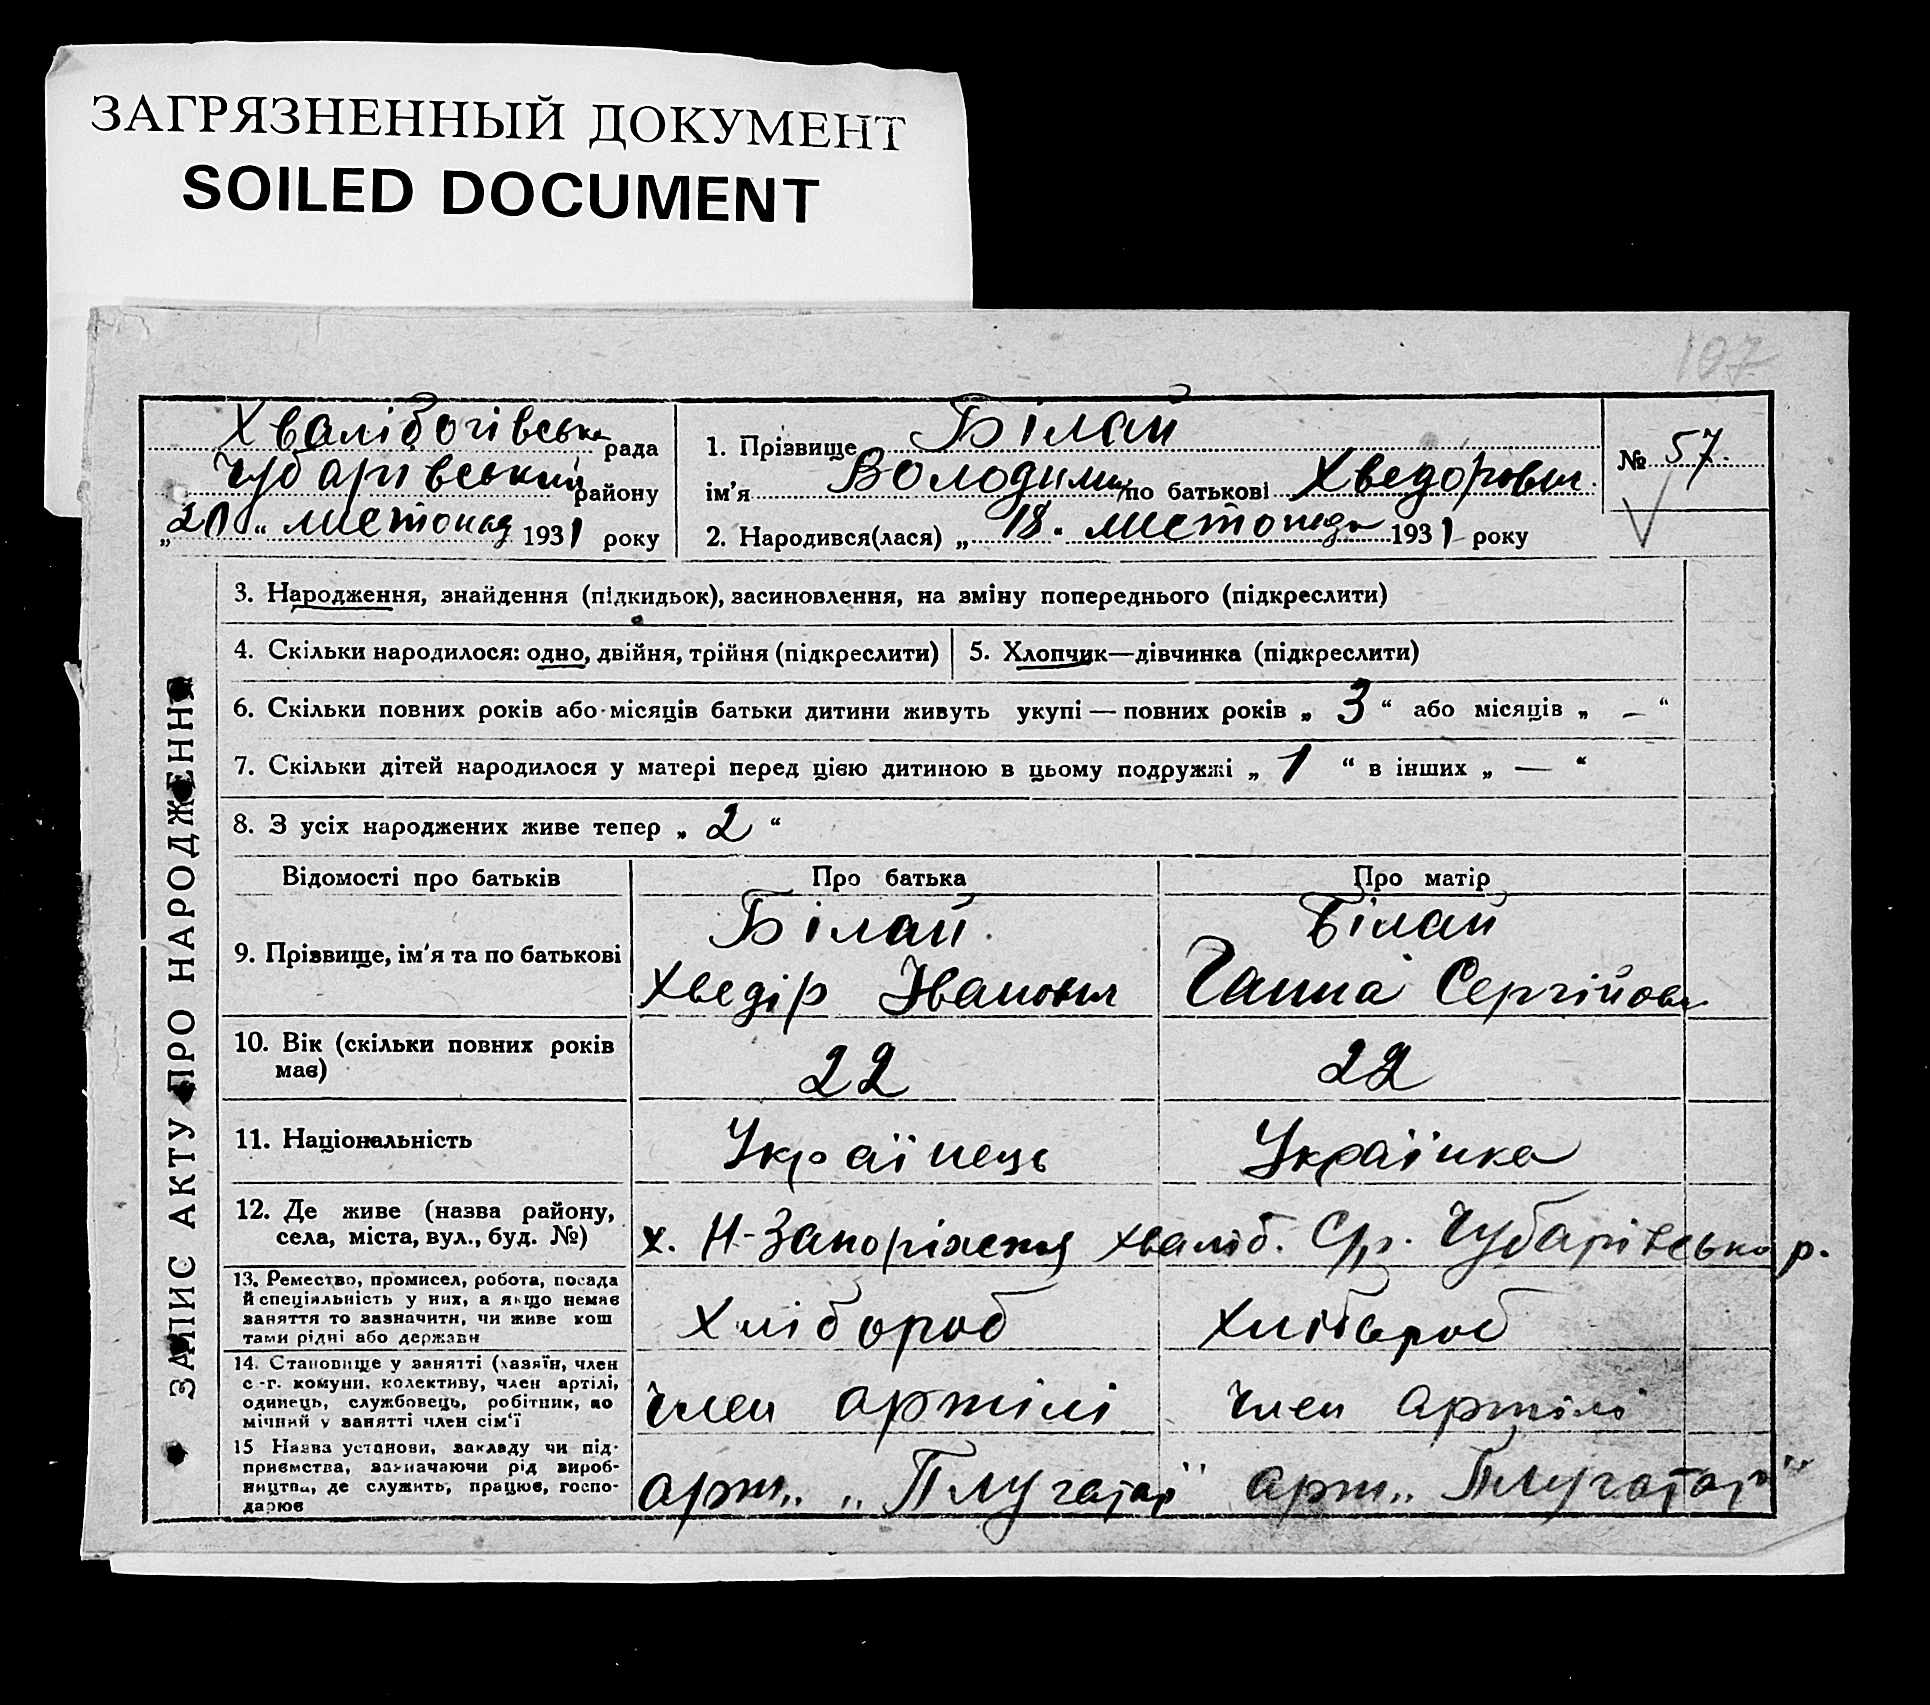 ЗАГРЯЗНЕННЫЙ ДОКУМЕНТ
SOILED DOCUMENT
107
Хвалібогівська рада
Чубарівський району
„21“ листопад 1931 року
1. Прізвище Білай
ім’я Володимир по батькові Хведорович
2. Народився(лася) „18“ листопада 1931 року
№ 57.
ЗАПИС АКТУ ПРО НАРОДЖЕННЯ
3. Народження, знайдення (підкидьок), засиновлення, на зміну попереднього (підкреслити)
4. Скільки народилося: одно, двійня, трійня (підкреслити)
5. Хлопчик—дівчинка (підкреслити)
6. Скільки повних років або місяців батьки дитини живуть укупі — повних років „3“ або місяців „–“
7. Скільки дітей народилося у матері перед цією дитиною в цьому подружжі „1“ в інших „—“
8. З усіх народжених живе тепер „2“
Відомості про батьків
Про батька
Про матір
9. Прізвище, ім’я та по батькові
Білай.
Хведір Іванович
Білай
Ганна Сергійовн
10. Вік (скільки повних років
має)
22
22
11. Національність
Українець
Українка
12. Де живе (назва району,
села, міста, вул., буд. №)
х. Н-Запоріжжя Хваліб. С/р. Чубарівсько р.
13. Ремество, промисел, робота, посада
й спеціяльність у них, а якщо немає
заняття то зазначити, чи живе кош
тами рідні або держави
Хлібороб
Хлібороб
14. Становище у занятті (хазяїн, член
с.-г. комуни, колективу, член артілі,
одинець, службовець, робітник, по
мічний у занятті член сім’ї
член артілі
член артілі
15 Назва установи, закладу чи під-
приємства, зазначаючи рід вироб-
ництва, де служить, працює, госпо-
дарює
арт. „Плугатар“
арт. „Плугатар“